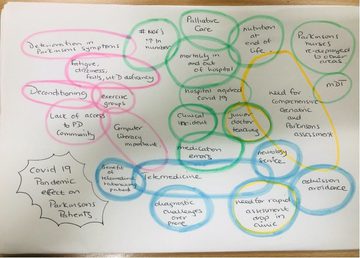 Deterioration in
Parkinsons symptoms
# NOF's
in
numbers
Palliative
Care
Nutrition
at
end of
life
Parkinsons
nurses
redeployed
to other
areas
MDT
Fatigue,
dizziness,
falls,
mortality in
and out
of hospital
Deconditioning
exercise
groups
hospital aquired
covid 19
need for
comprehensive
Geriatric
and
Parkinsons
assessment
Lack of access
to PD
community
Computer
literacy
important
Clinical
incident
junior
doctor
teaching
medication
errors
Covid 19
Pandemic
effect on
Parkinsons
Patients
Benefit
of
telemedicine
patient
Telemedicine
neurology
service
admission
avoidance
diagnostic
challenges
over
phone
need for rapid
assessment
drop in
clinic